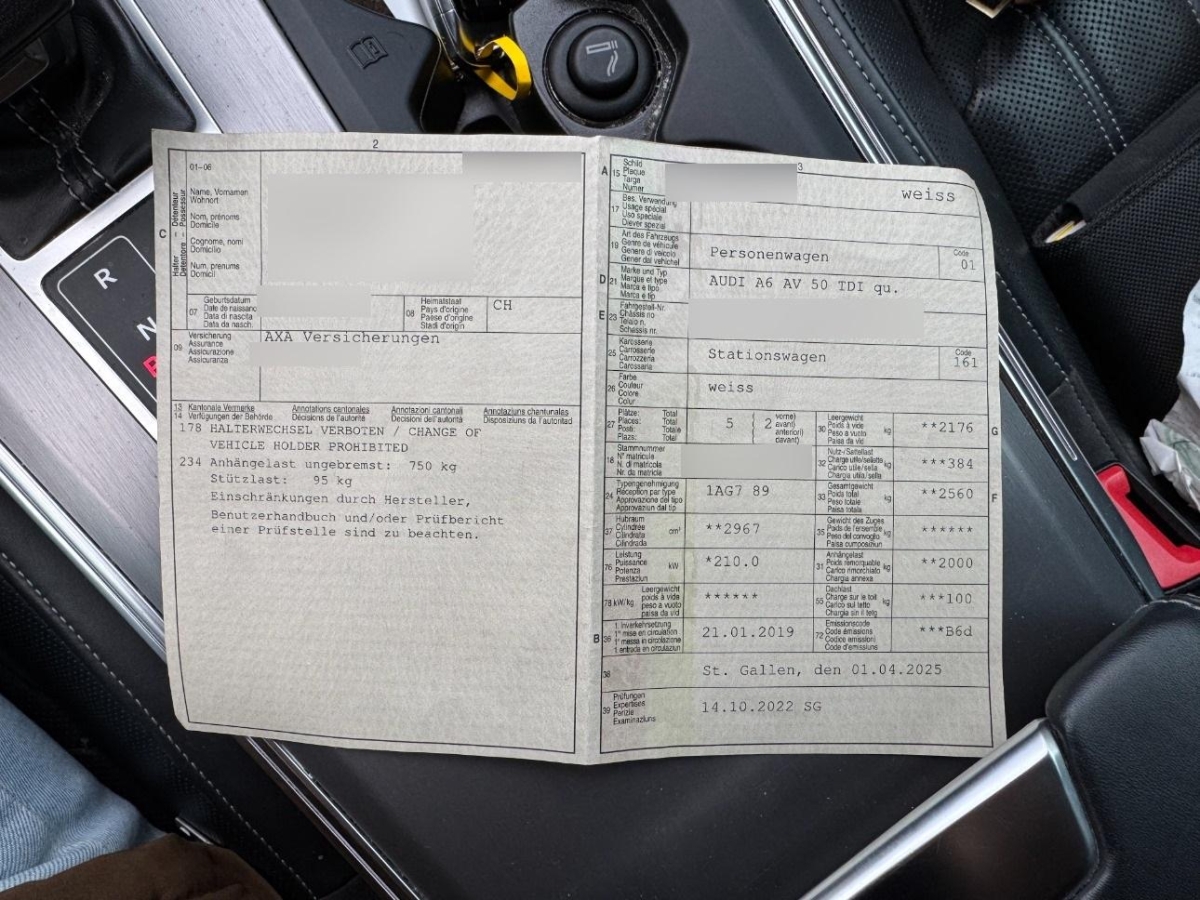 R
N
2
01-06
C
Halter – Détenteur
Detentore – Possessur
Name, Vornamen
Wohnort
Nom, prénoms
Domicile
Cognome, nomi
Domicilio
Num, prenums
Domicil
07
Geburtsdatum
Date de naissance
Data di nascita
Data da nasch.
08
Heimatstaat
Pays d'origine
Paese d'origine
Stadi d'origin
CH
09
Versicherung
Assurance
Assicurazione
Assicuranza
AXA Versicherungen
13 Kantonale Vermerke Annotations cantonales Annotazioni cantonali Annotaziuns chantunalas
14 Verfügungen der Behörde Décisions de l'autorité Decisioni dell'autorità Disposiziuns da l'autoritad
178 HALTERWECHSEL VERBOTEN / CHANGE OF
VEHICLE HOLDER PROHIBITED
234 Anhängelast ungebremst: 750 kg
Stützlast: 95 kg
Einschränkungen durch Hersteller,
Benutzerhandbuch und/oder Prüfbericht
einer Prüfstelle sind zu beachten.
3
A 15
Schild
Plaque
Targa
Numer
weiss
17
Bes. Verwendung
Usage spécial
Uso speciale
Diever spezial
19
Art des Fahrzeugs
Genre de véhicule
Genere di veicolo
Gener dal vehichel
Personenwagen
Code
01
D 21
Marke und Typ
Marque et type
Marca e tipo
Marca e tip
AUDI A6 AV 50 TDI qu.
E 23
Fahrgestell-Nr.
Châssis no
Telaio n.
Schassis nr.
25
Karosserie
Carrosserie
Carrozzeria
Carossaria
Stationswagen
Code
161
26
Farbe
Couleur
Colore
Colur
weiss
27
Plätze: Total
Places: Total
Posti: Totale
Plazs: Total
5
2
vorne)
avant)
anteriori)
davant)
30
Leergewicht
Poids à vide
Peso a vuoto
Paisa da vid
kg
**2176
G
18
Stammnummer
N° matricule
N. di matricola
Nr. da matricla
32
Nutz-/Sattellast
Charge utile/sellette
Carico utile/sella
Chargia utila/sella
kg
***384
24
Typengenehmigung
Réception par type
Approvazione del tipo
Approvaziun dal tip
1AG7 89
33
Gesamtgewicht
Poids total
Peso totale
Paisa totala
kg
**2560
F
37
Hubraum
Cylindrée
Cilindrata
Cilindrada
cm³
**2967
35
Gewicht des Zuges
Poids de l'ensemble
Peso del convoglio
Paisa cumposiziun
kg
******
76
Leistung
Puissance
Potenza
Prestaziun
kW
*210.0
31
Anhängelast
Poids remorquable
Carico rimorchiato
Chargia annexa
kg
**2000
78 kW/kg
Leergewicht
poids à vide
peso a vuoto
paisa da vid
******
55
Dachlast
Charge sur le toit
Carico sul tetto
Chargia sin il tetg
kg
***100
B 36
1. Inverkehrsetzung
1re mise en circulation
1a messa in circolazione
1. entrada en circulaziun
21.01.2019
72
Emissionscode
Code émissions
Codice emissioni
Code d'emissiuns
***B6d
38
St. Gallen, den 01.04.2025
39
Prüfungen
Expertises
Perizie
Examinaziuns
14.10.2022 SG